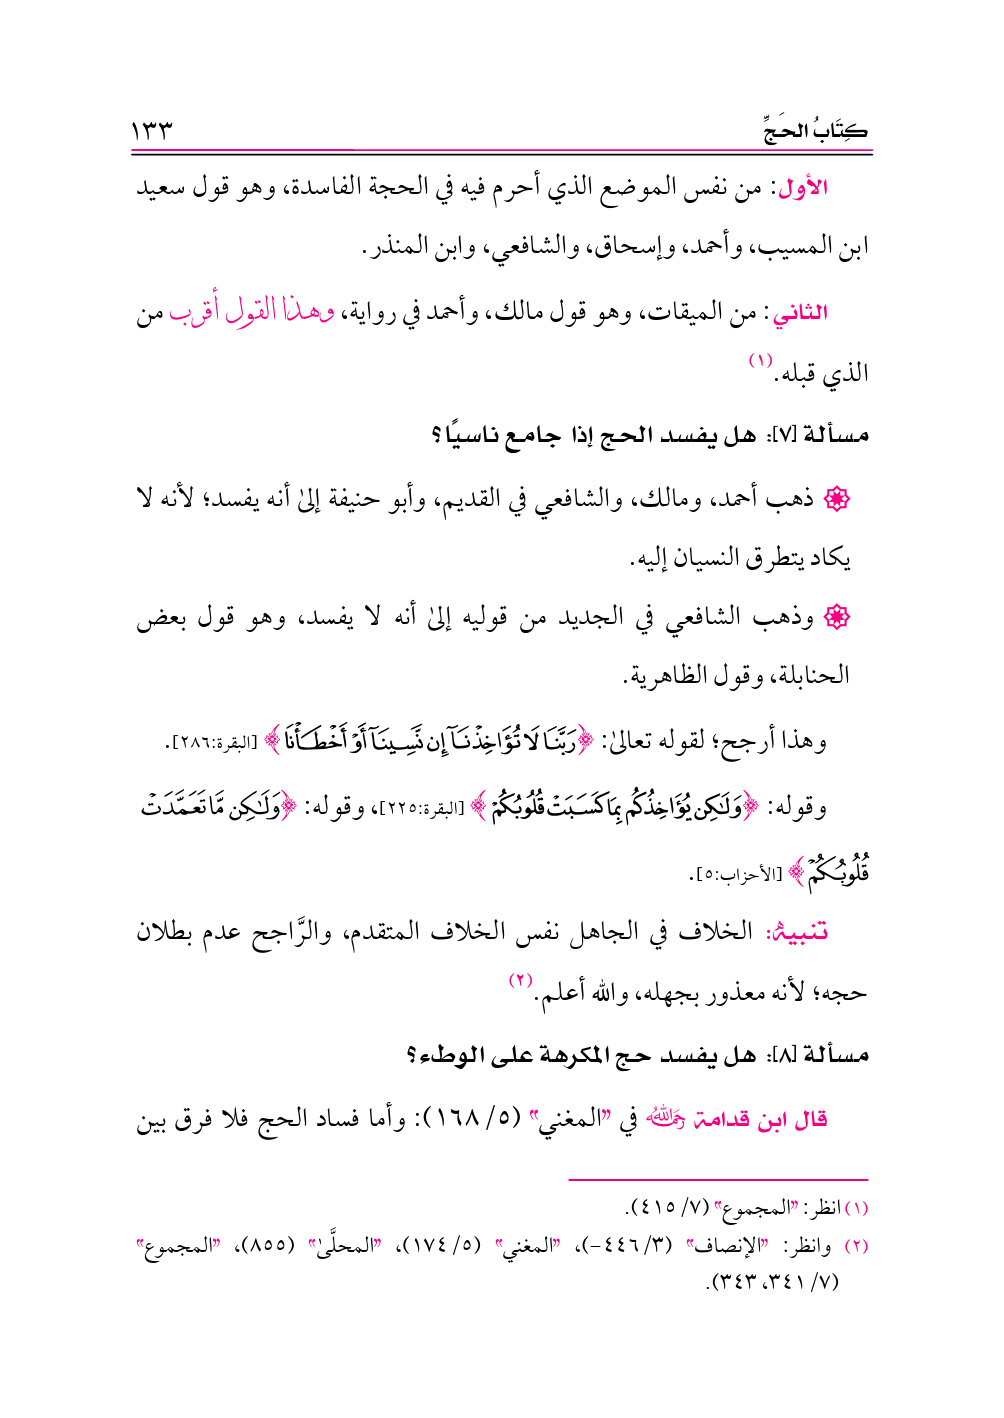 كِتَابُ الحَجِّ ١٣٣
الأول: من نفس الموضع الذي أحرم فيه في الحجة الفاسدة، وهو قول سعيد
ابن المسيب، وأحمد، وإسحاق، والشافعي، وابن المنذر.
الثاني: من الميقات، وهو قول مالك، وأحمد في رواية، وهذا القول أقرب من
الذي قبله.(١)
مسألة [٧]: هل يفسد الحج إذا جامع ناسيًا؟
ذهب أحمد، ومالك، والشافعي في القديم، وأبو حنيفة إلىٰ أنه يفسد؛ لأنه لا
يكاد يتطرق النسيان إليه.
وذهب الشافعي في الجديد من قوليه إلىٰ أنه لا يفسد، وهو قول بعض
الحنابلة، وقول الظاهرية.
وهذا أرجح؛ لقوله تعالىٰ: ﴿رَبَّنَا لَا تُؤَاخِذْنَآ إِن نَّسِينَآ أَوْ أَخْطَأْنَا﴾ [البقرة:٢٨٦].
وقوله: ﴿وَلَٰكِن يُؤَاخِذُكُم بِمَا كَسَبَتْ قُلُوبُكُمْ﴾ [البقرة:٢٢٥]، وقوله: ﴿وَلَٰكِن مَّا تَعَمَّدَتْ
قُلُوبُكُمْ﴾ [الأحزاب:٥].
تنبيهٌ: الخلاف في الجاهل نفس الخلاف المتقدم، والرَّاجح عدم بطلان
حجه؛ لأنه معذور بجهله، والله أعلم.(٢)
مسألة [٨]: هل يفسد حج المكرهة على الوطء؟
قال ابن قدامة رحمه الله في "المغني" (٥/ ١٦٨): وأما فساد الحج فلا فرق بين
(١) انظر: "المجموع" (٧/ ٤١٥).
(٢) وانظر: "الإنصاف" (٣/ ٤٤٦-)، "المغني" (٥/ ١٧٤)، "المحلَّىٰ" (٨٥٥)، "المجموع"
(٧/ ٣٤١، ٣٤٣).